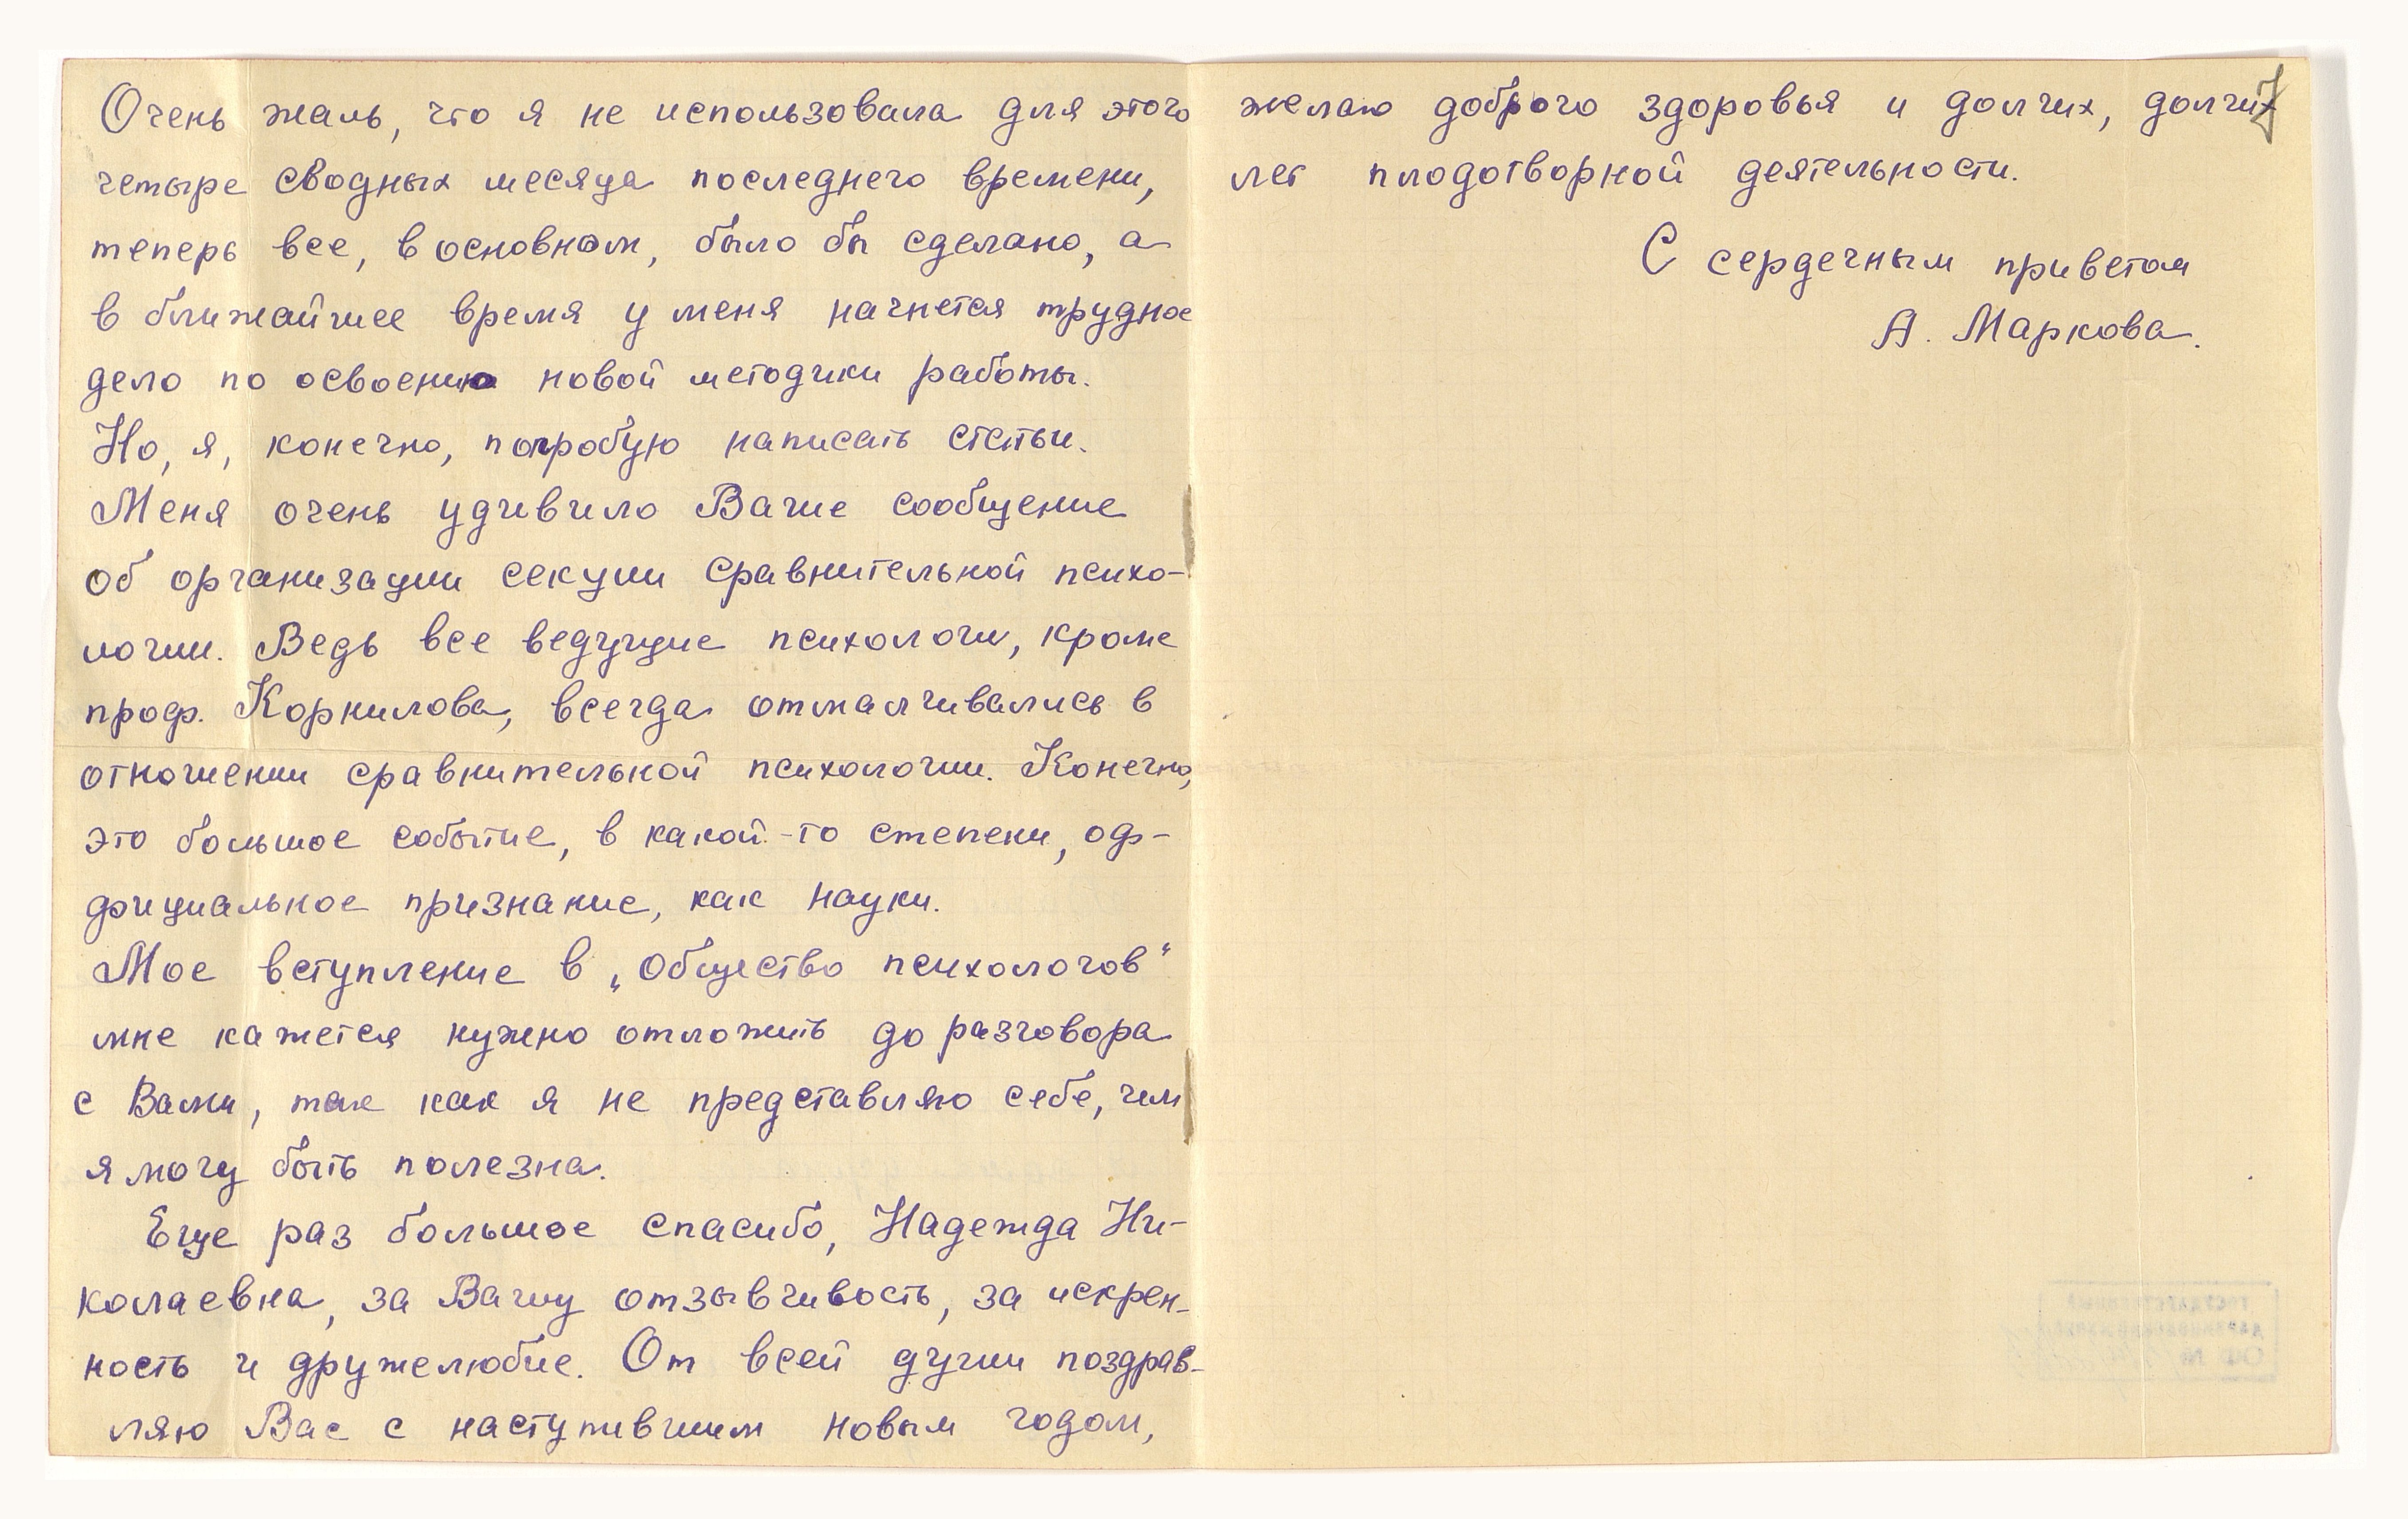 Очень жаль, что я не использовала для этого
четыре сводных месяца последнего времени,
теперь все, в основном, было бы сделано, а
в ближайшее время у меня начнется трудное
дело по освоению новой методики работы.
Но, я, конечно, попробую написать статьи.
Меня очень удивило Ваше сообщение
об организации секции сравнительной психо-
логии. Ведь все ведущие психологи, кроме
проф. Корнилова, всегда отмалчивались в
отношении сравнительной психологии. Конечно,
это большое событие, в какой-то степени, оф-
фициальное признание, как науки.
Мое вступление в „Общество психологов"
мне кажется нужно отложить до разговора
с Вами, так как я не представляю себе, чем
я могу быть полезна.
Еще раз большое спасибо, Надежда Ни-
колаевна, за Вашу отзывчивость, за искрен-
ность и дружелюбие. От всей души поздрав-
ляю Вас с наступившим новым годом,
желаю доброго здоровья и долгих, долгих
лет плодотворной деятельности.
С сердечным приветом
А. Маркова.
7